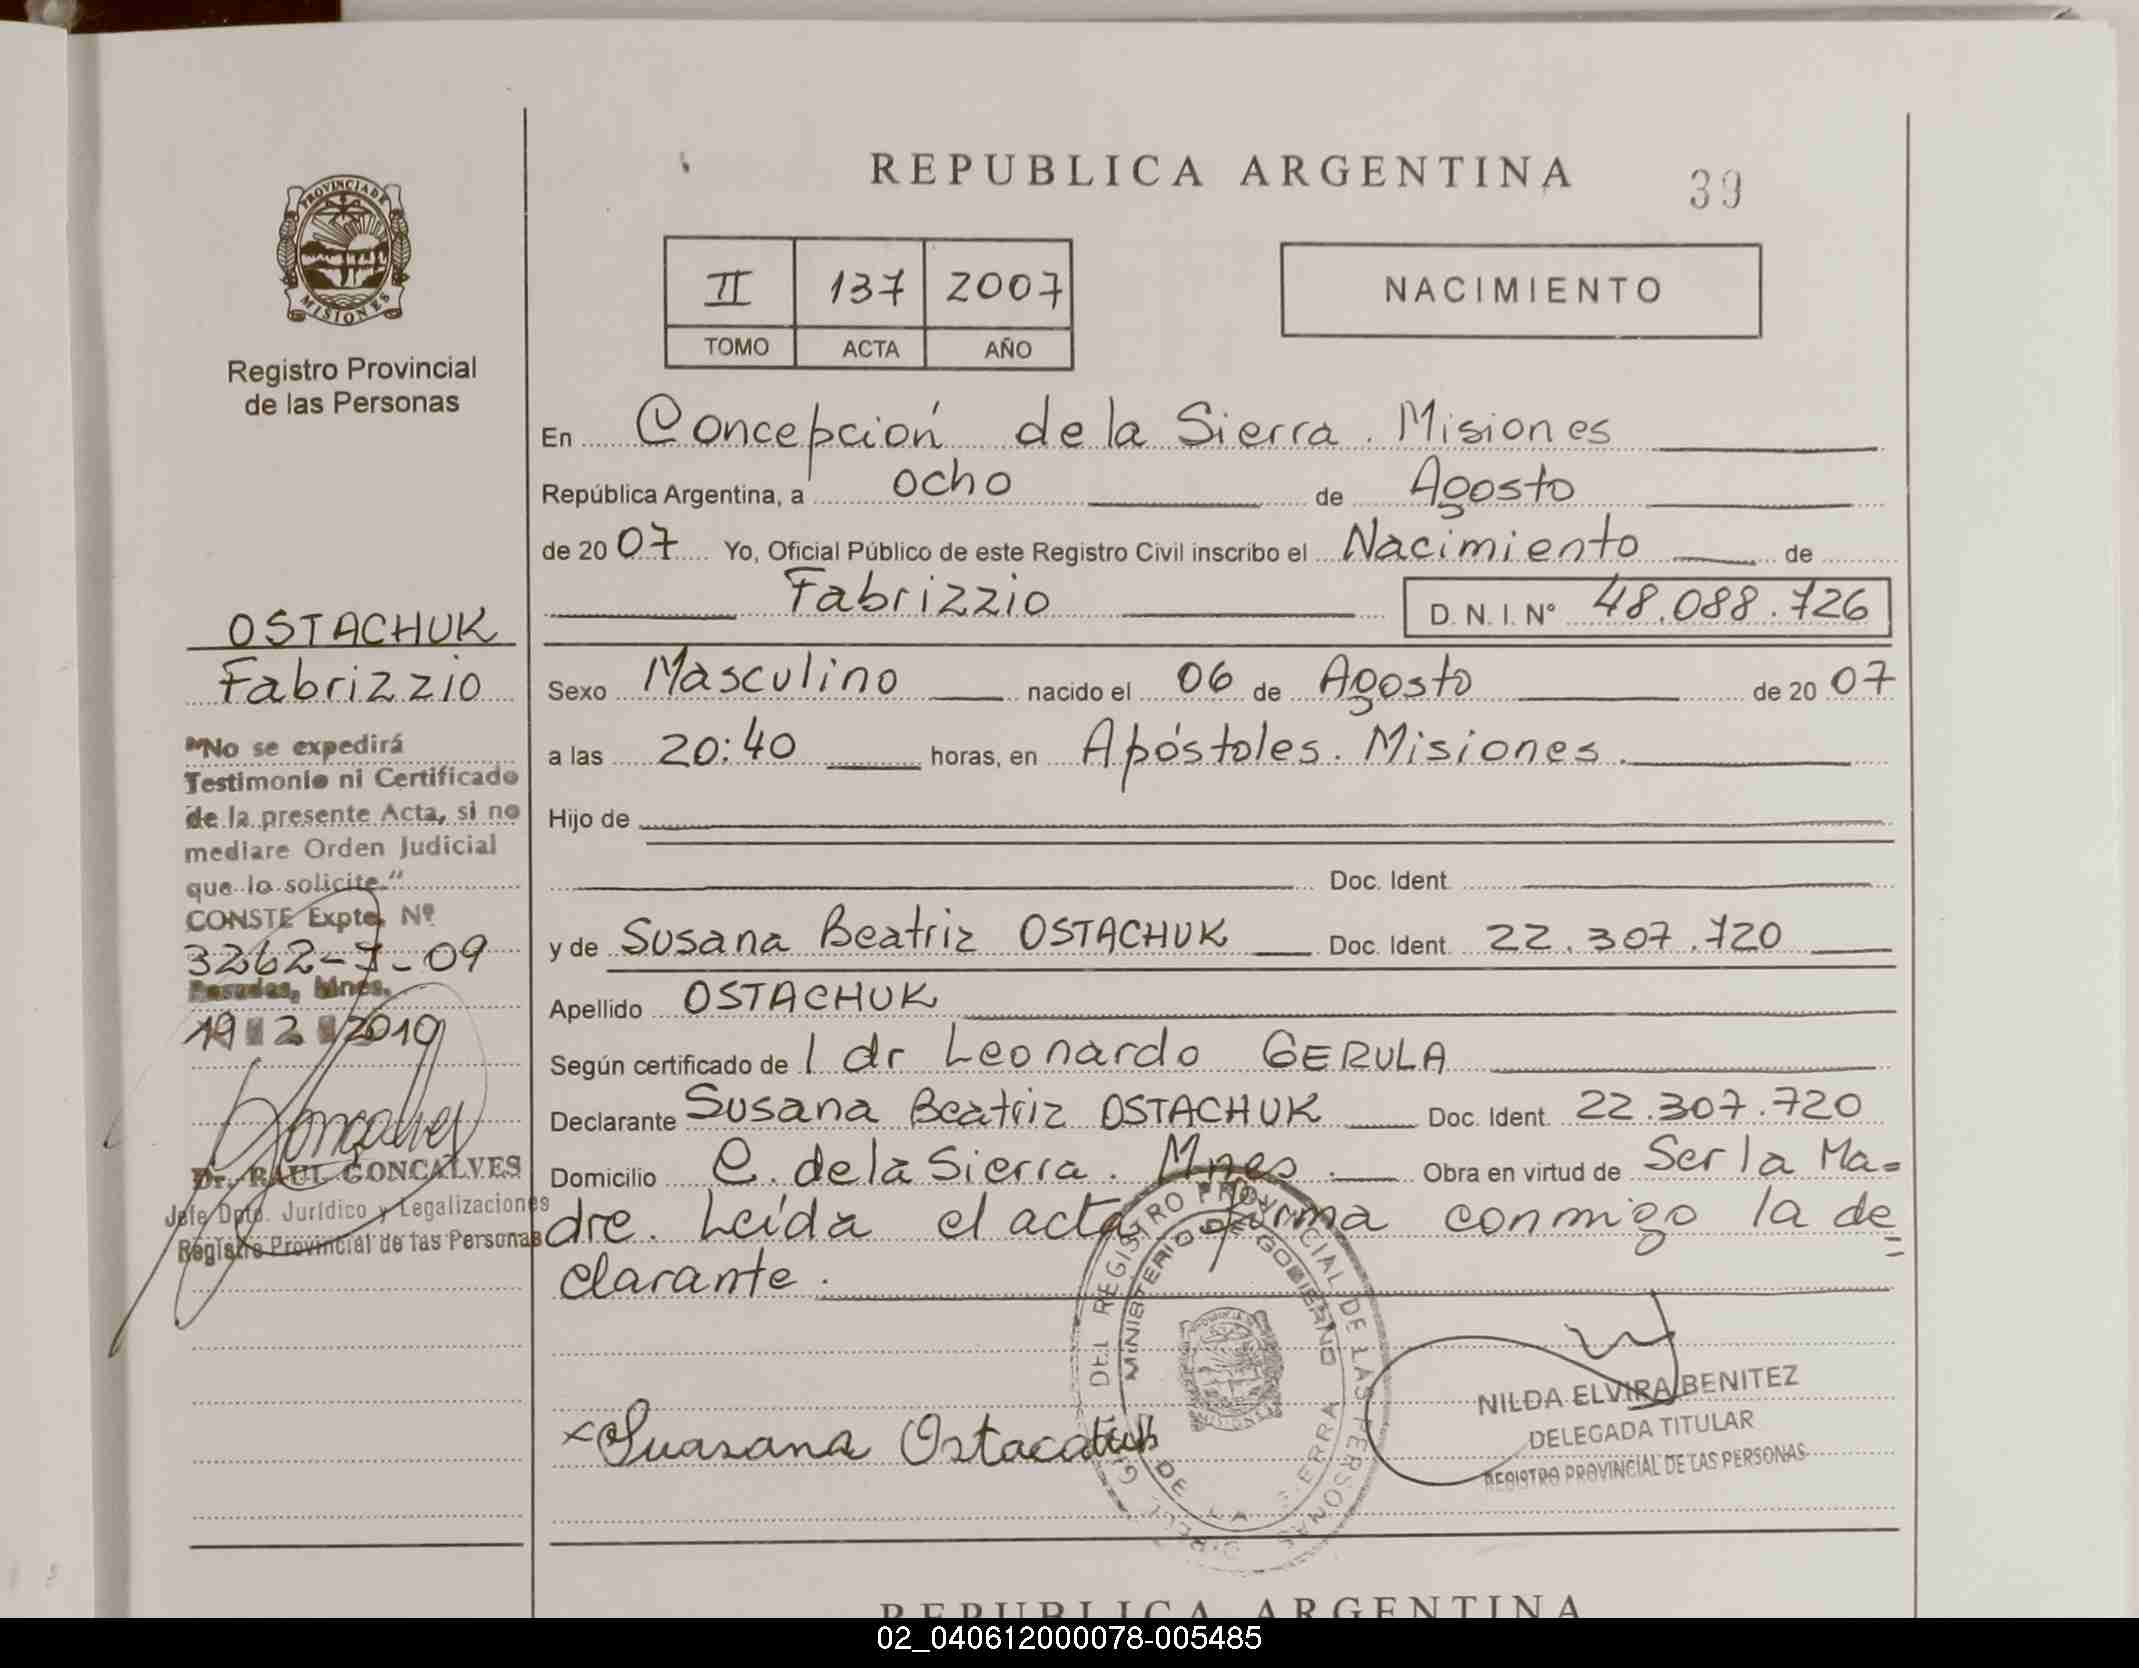 REPUBLICA ARGENTINA
39
PROVINCIA DE
MISIONES
Registro Provincial
de las Personas
II 137 2007
TOMO ACTA AÑO
NACIMIENTO
En Concepción de la Sierra. Misiones
República Argentina, a ocho de Agosto
de 20 07 Yo, Oficial Público de este Registro Civil inscribo el Nacimiento de
Fabrizzio D. N. I. Nº 48.088.726
Sexo Masculino nacido el 06 de Agosto de 20 07
a las 20:40 horas, en Apóstoles. Misiones.
Hijo de
Doc. Ident.
y de Susana Beatriz OSTACHUK Doc. Ident. 22.307.720
Apellido OSTACHUK
Según certificado de l dr Leonardo GERULA
Declarante Susana Beatriz OSTACHUK Doc. Ident. 22.307.720
Domicilio C. de la Sierra. Mnes. Obra en virtud de Ser la Ma=
dre. Leída el acta firma conmigo la de
=
clarante.
OSTACHUK
Fabrizzio
"No se expedirá
Testimonio ni Certificado
de la presente Acta, si no
mediare Orden Judicial
que lo solicite."
CONSTE Expte. Nº
3262-J-09
Posadas, Mnes.
19 2 2010
Dr. RAUL GONCALVES
Jefe Dpto. Jurídico y Legalizaciones
Registro Provincial de las Personas
DEL REGISTRO PROVINCIAL DE LAS PERSONAS
MINISTERIO DE GOBIERNO
DE LA SIERRA
x Suasana
NILDA ELVIRA BENITEZ
DELEGADA TITULAR
REGISTRO PROVINCIAL DE LAS PERSONAS
REPUBLICA ARGENTINA
02_040612000078-005485